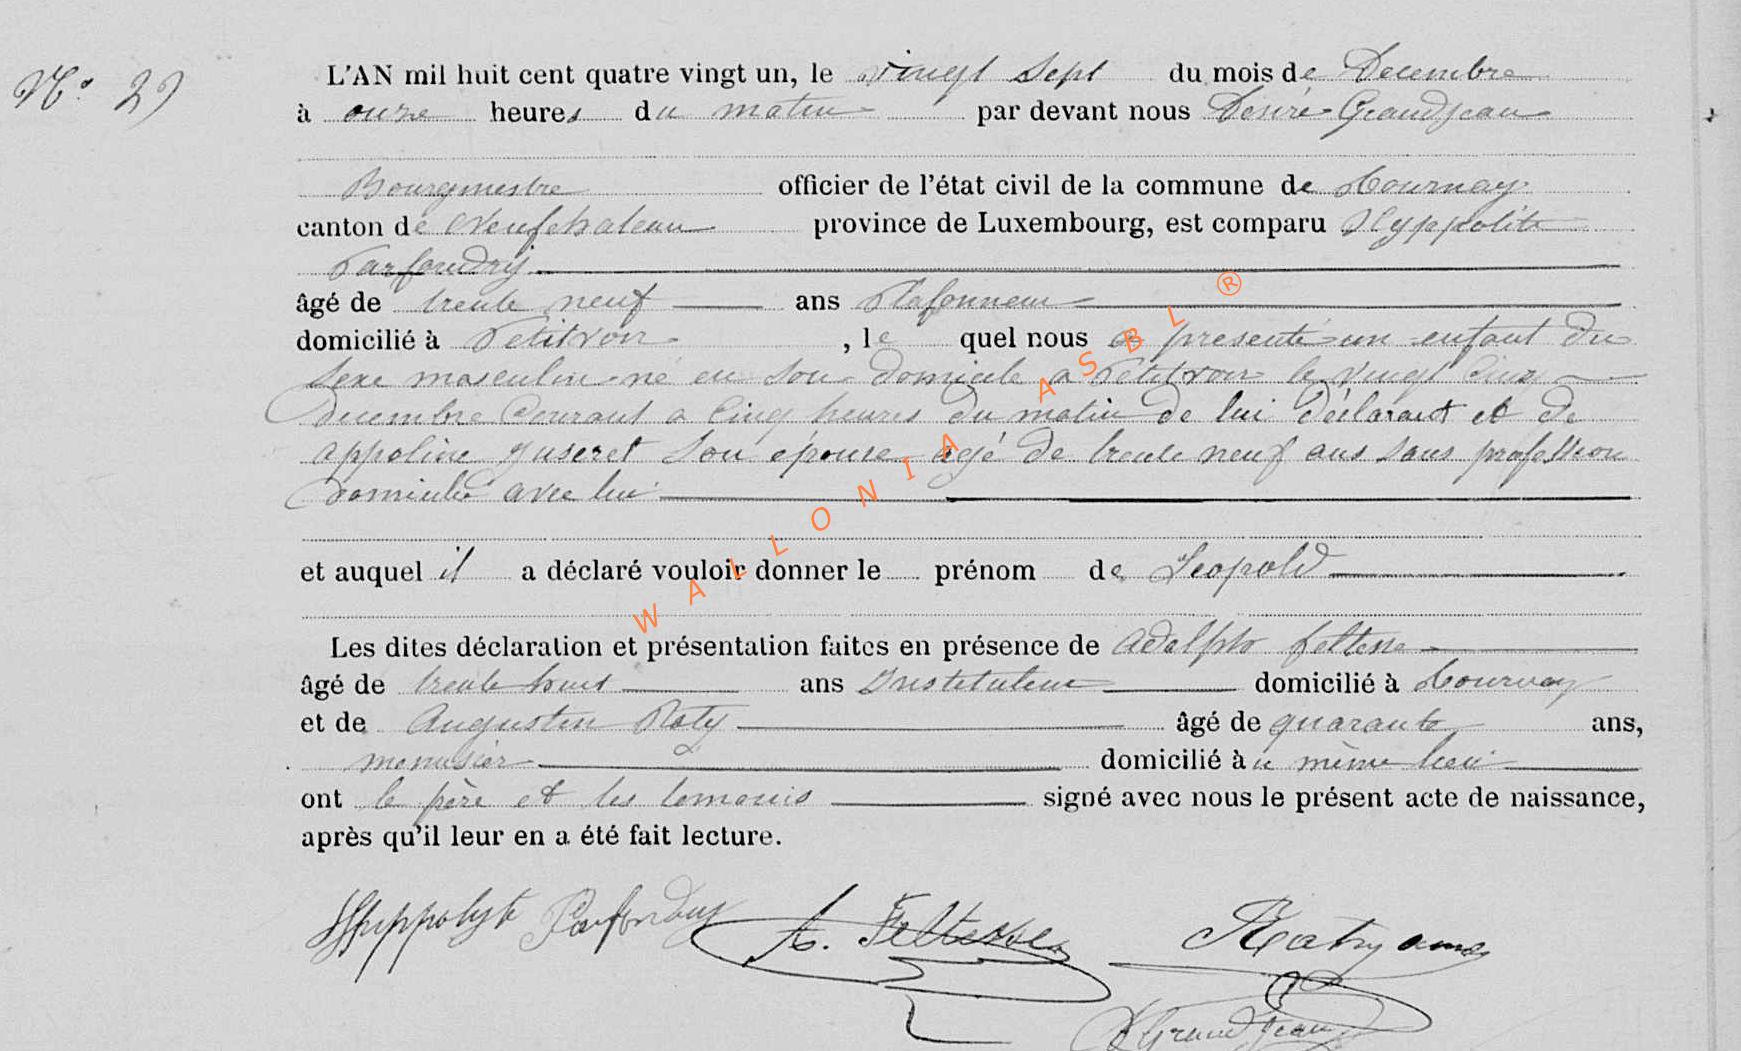 N.° 27
L'AN mil huit cent quatre vingt un, le vingt sept du mois de Decembre
à onze heures du matin par devant nous Desiré Grandjean
Bourgmestre officier de l'état civil de la commune de Tournay
canton de Neufchateau province de Luxembourg, est comparu Hyppolite
Parfondry
âgé de trente neuf ans Plafonneur
domicilié à Petitvoir , le quel nous a presenté un enfant du
sexe masculin né en son domicile a Petitvoir le vingt cinq
decembre courant a cinq heures du matin de lui déclarant et de
appoline Juseret son épouse agé de trente neuf ans sans profession
domicilié avec lui
et auquel il a déclaré vouloir donner le prénom de Leopold
Les dites déclaration et présentation faites en présence de Adolphe Feltesse
âgé de trente ans Instituteur domicilié à Tournay
et de Augustin Roty âgé de quarante ans,
menusier domicilié au même lieu
ont le père et les temouis signé avec nous le présent acte de naissance,
après qu'il leur en a été fait lecture.
Hyppolyte Parfondry A. Feltesse
DGrandjean
WALLONIA ASBL ®